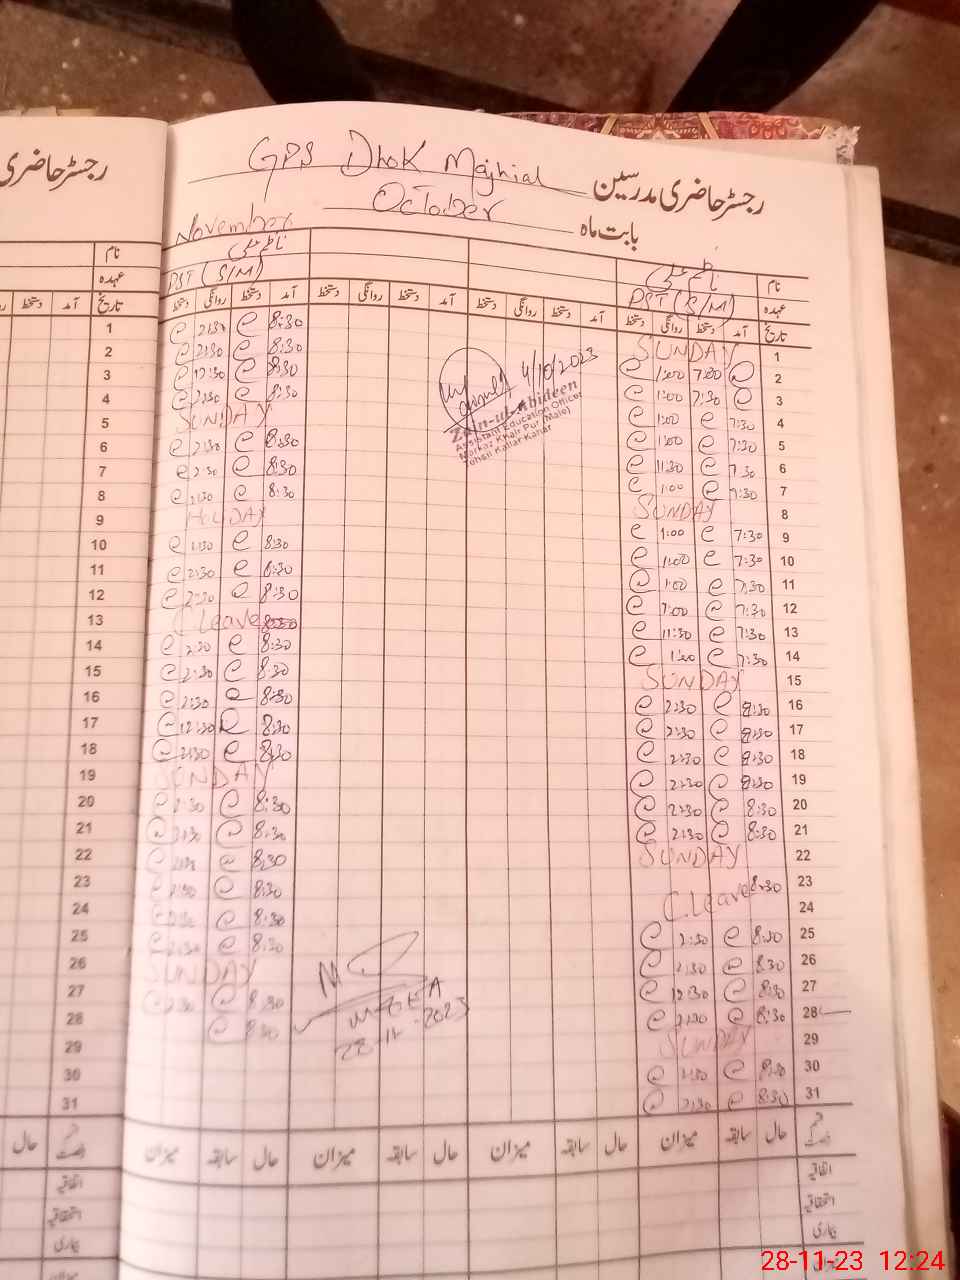 GPS Dhok Majhial رجسٹر حاضری مدرسین
رجسٹر حاضری
October بابت ماہ
November
نام ناظم علی
نام ناظم علی
عہدہ PST (S/M)
عہدہ PST (S/M)
تاریخ آمد دستخط روانگی دستخط آمد دستخط روانگی دستخط آمد دستخط روانگی دستخط آمد دستخط روانگی دستخط
تاریخ
1 SUNDAY
2 7:00 1:00
3 7:30 1:00
4 7:30 1:00
5 7:30 1:00
6 7:30 11:30
7 7:30 1:00
8 SUNDAY
9 7:30 1:00
10 7:30 1:00
11 7:30 1:00
12 7:30 1:00
13 7:30 11:30
14 7:30 1:00
15 SUNDAY
16 8:30 2:30
17 8:30 2:30
18 8:30 2:30
19 8:30 2:30
20 8:30 2:30
21 8:30 2:30
22 SUNDAY
23 8:30
24 C.Leave
25 8:30 2:30
26 8:30 2:30
27 8:30 12:30
28 8:30 2:30
29 SUNDAY
30 8:30 2:30
31 8:30 2:30
4/10/2023
Zain-ul-Abideen
Assistant Education Officer
Markaz Khair Pur (Male)
Tehsil Kallar Kahar
1 8:30 2:30
2 8:30 2:30
3 8:30 12:30
4 8:30 2:30
5 SUNDAY
6 8:30 2:30
7 8:30 2:30
8 8:30 2:30
9 HOLIDAY
10 8:30 1:30
11 8:30 2:30
12 8:30 2:30
13 C Leave
14 8:30 2:30
15 8:30 2:30
16 8:30 2:30
17 8:30 12:30
18 8:30 2:30
19 SUNDAY
20 8:30 2:30
21 8:30 2:30
22 8:30
23 8:30 2:30
24 8:30
25 8:30 2:30
26 SUNDAY
27 8:30 2:30
28 8:30
29
30
31
MEA
28-11-2023
حال سابقہ میزان حال سابقہ میزان حال سابقہ میزان حال سابقہ میزان
قسم رخصت
اتفاقیہ
استحقاقیہ
بیماری
میزان
28-11-23 12:24